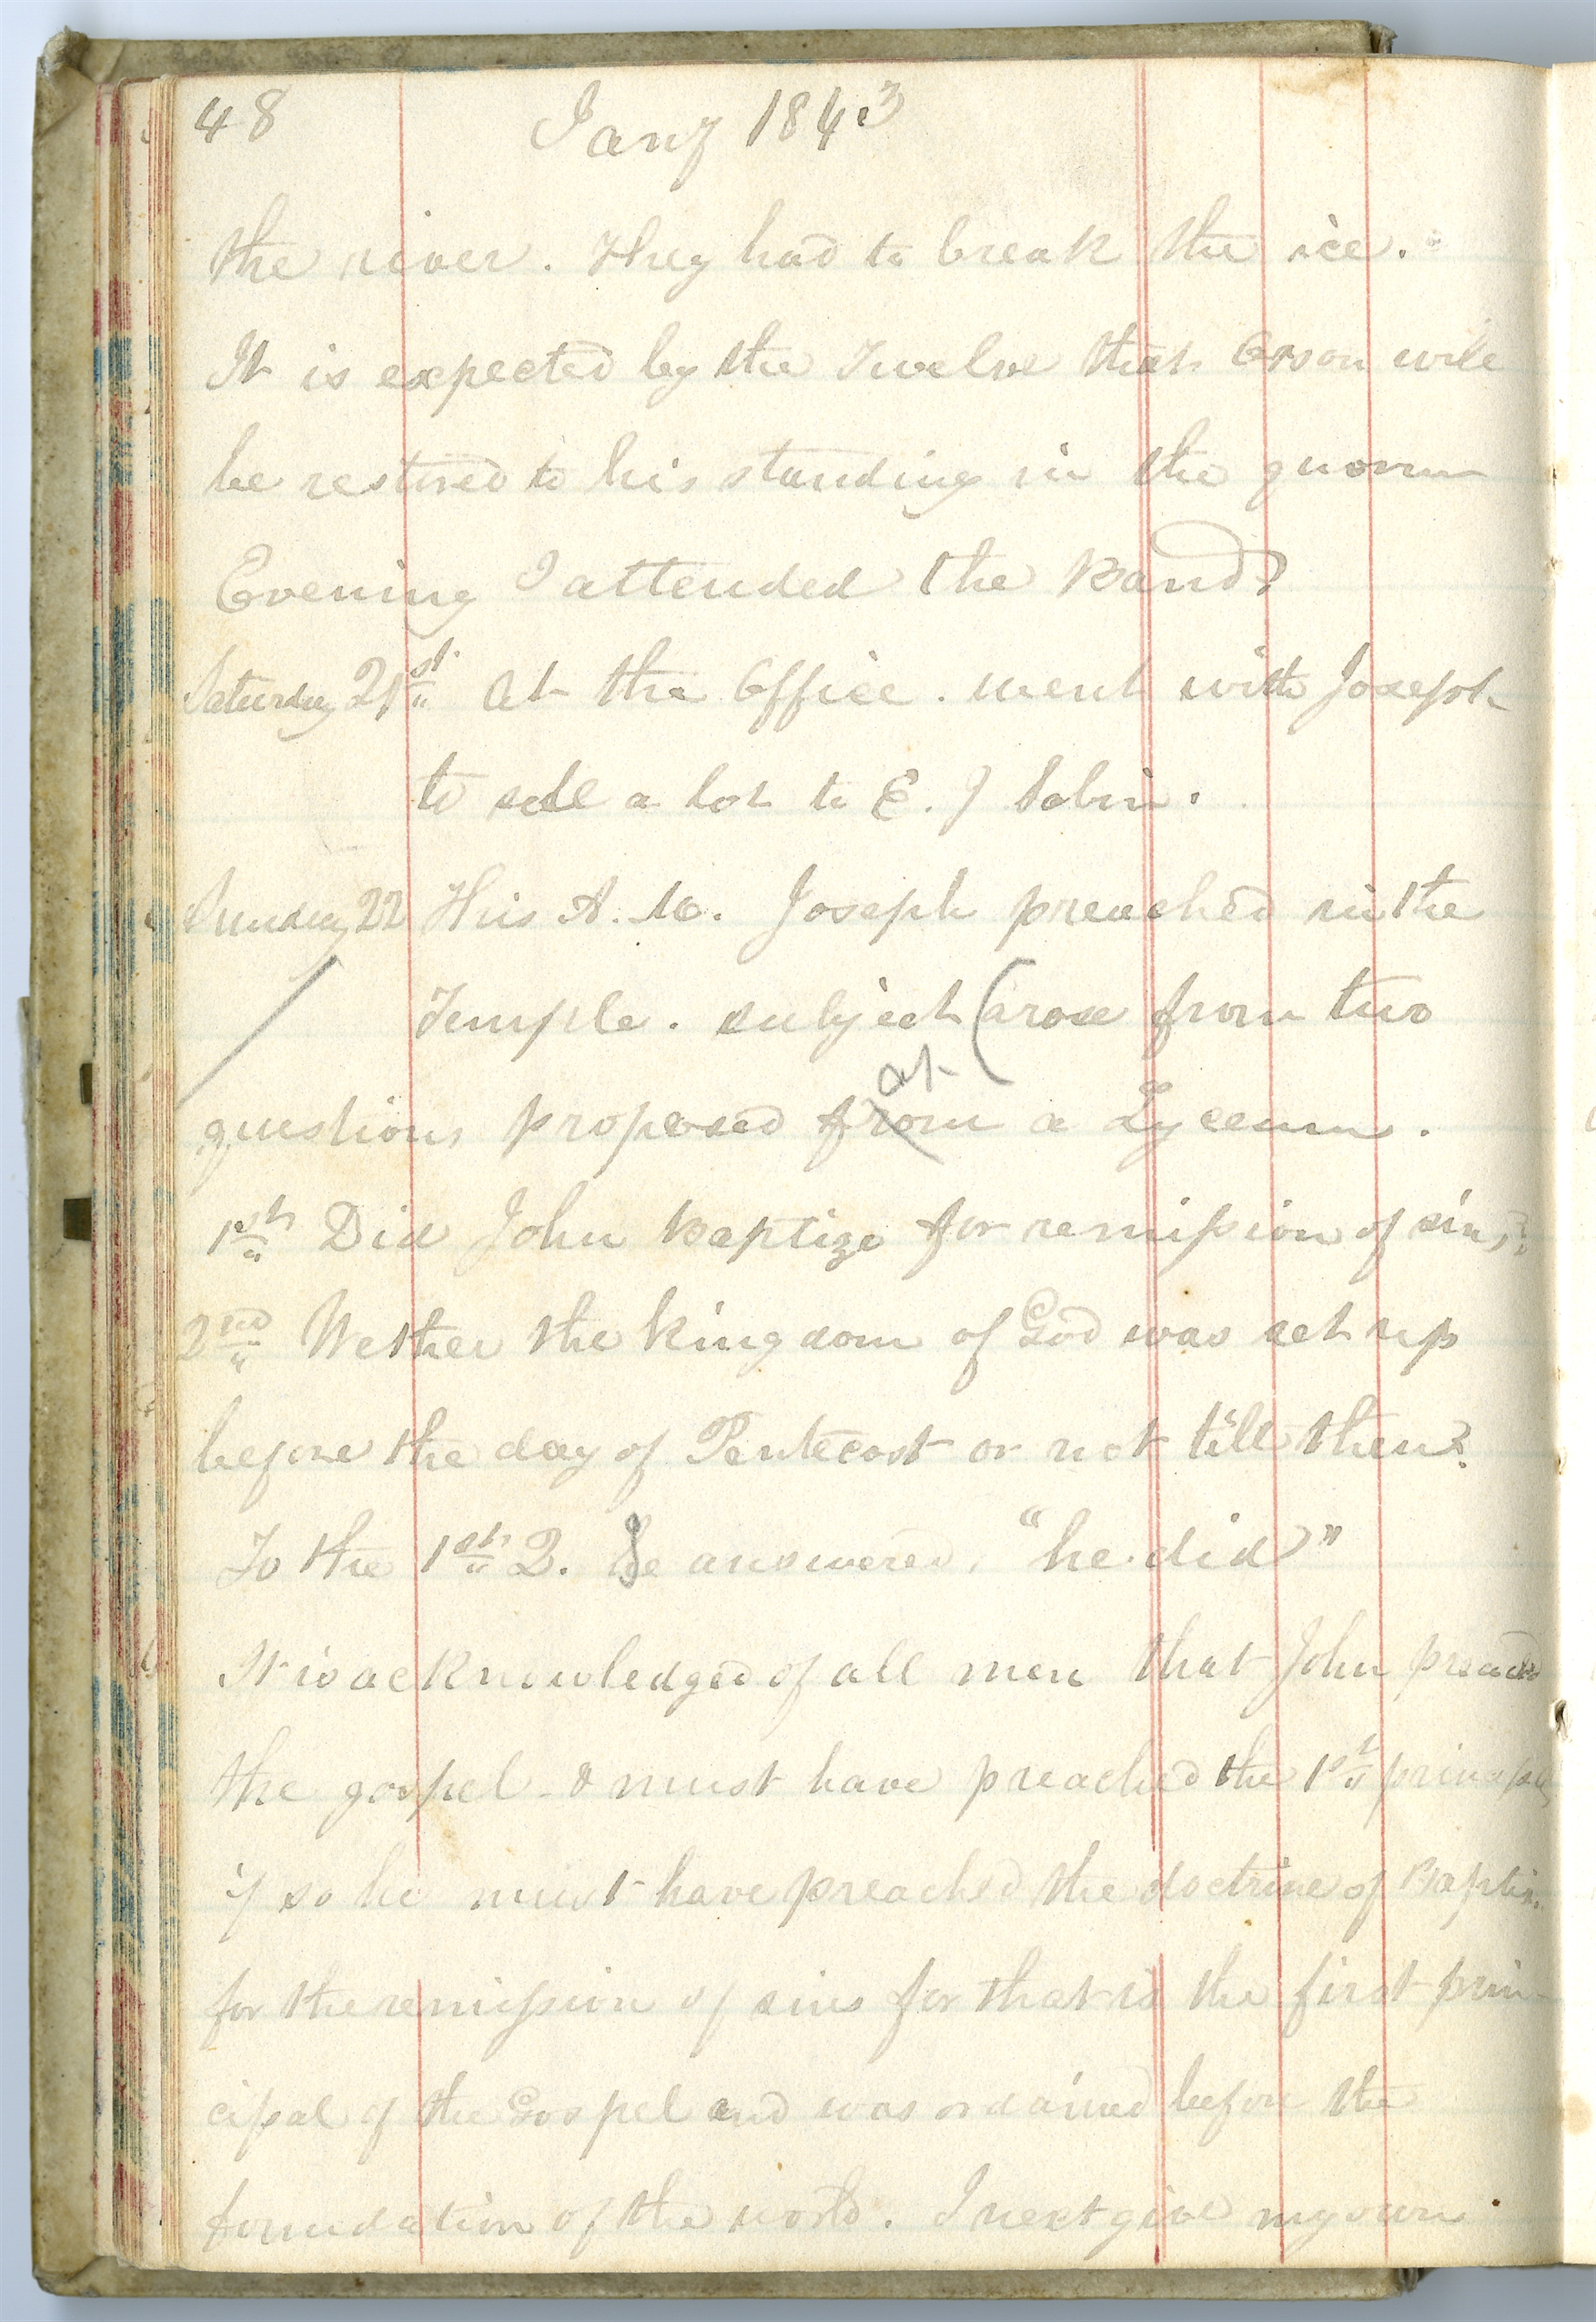 48 Jany 1843
the river. They had to break the ice.
It is expected by the Twelve that Orson will
be restored to his standing in the quorum
Evening I attended the Band?
Saturday 21st At the Office. went with Joseph
to sell a lot to E. J Sabin.
Sunday 22 This A. M. Joseph preached in the
Temple. subject (arose from two
at
questions proposed from a Lyceum.
1st Did John Baptize for remission of sins?
2nd Wether the kingdom of God was set up
before the day of Pentecost or not till then?
To the 1st Q. He answered, "he did"
It is acknowledged of all men that John preached
the gospel - & must have preached the 1st principle,
if so he must have preached the doctrine of Baptism
for the remission of sins for that is the first prin-
cipal of the Gospel and was ordained before the
foundation of the world. I next give my own